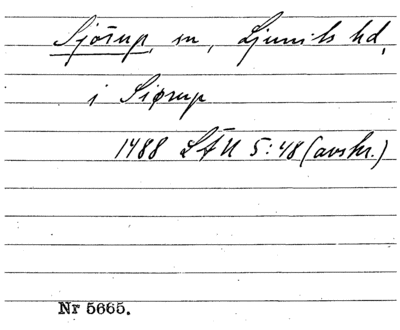 Sjörup, sn, Ljunits hd,
i Siørup
1488 LÅU 5:48 (avskr.)
Nr 5665.